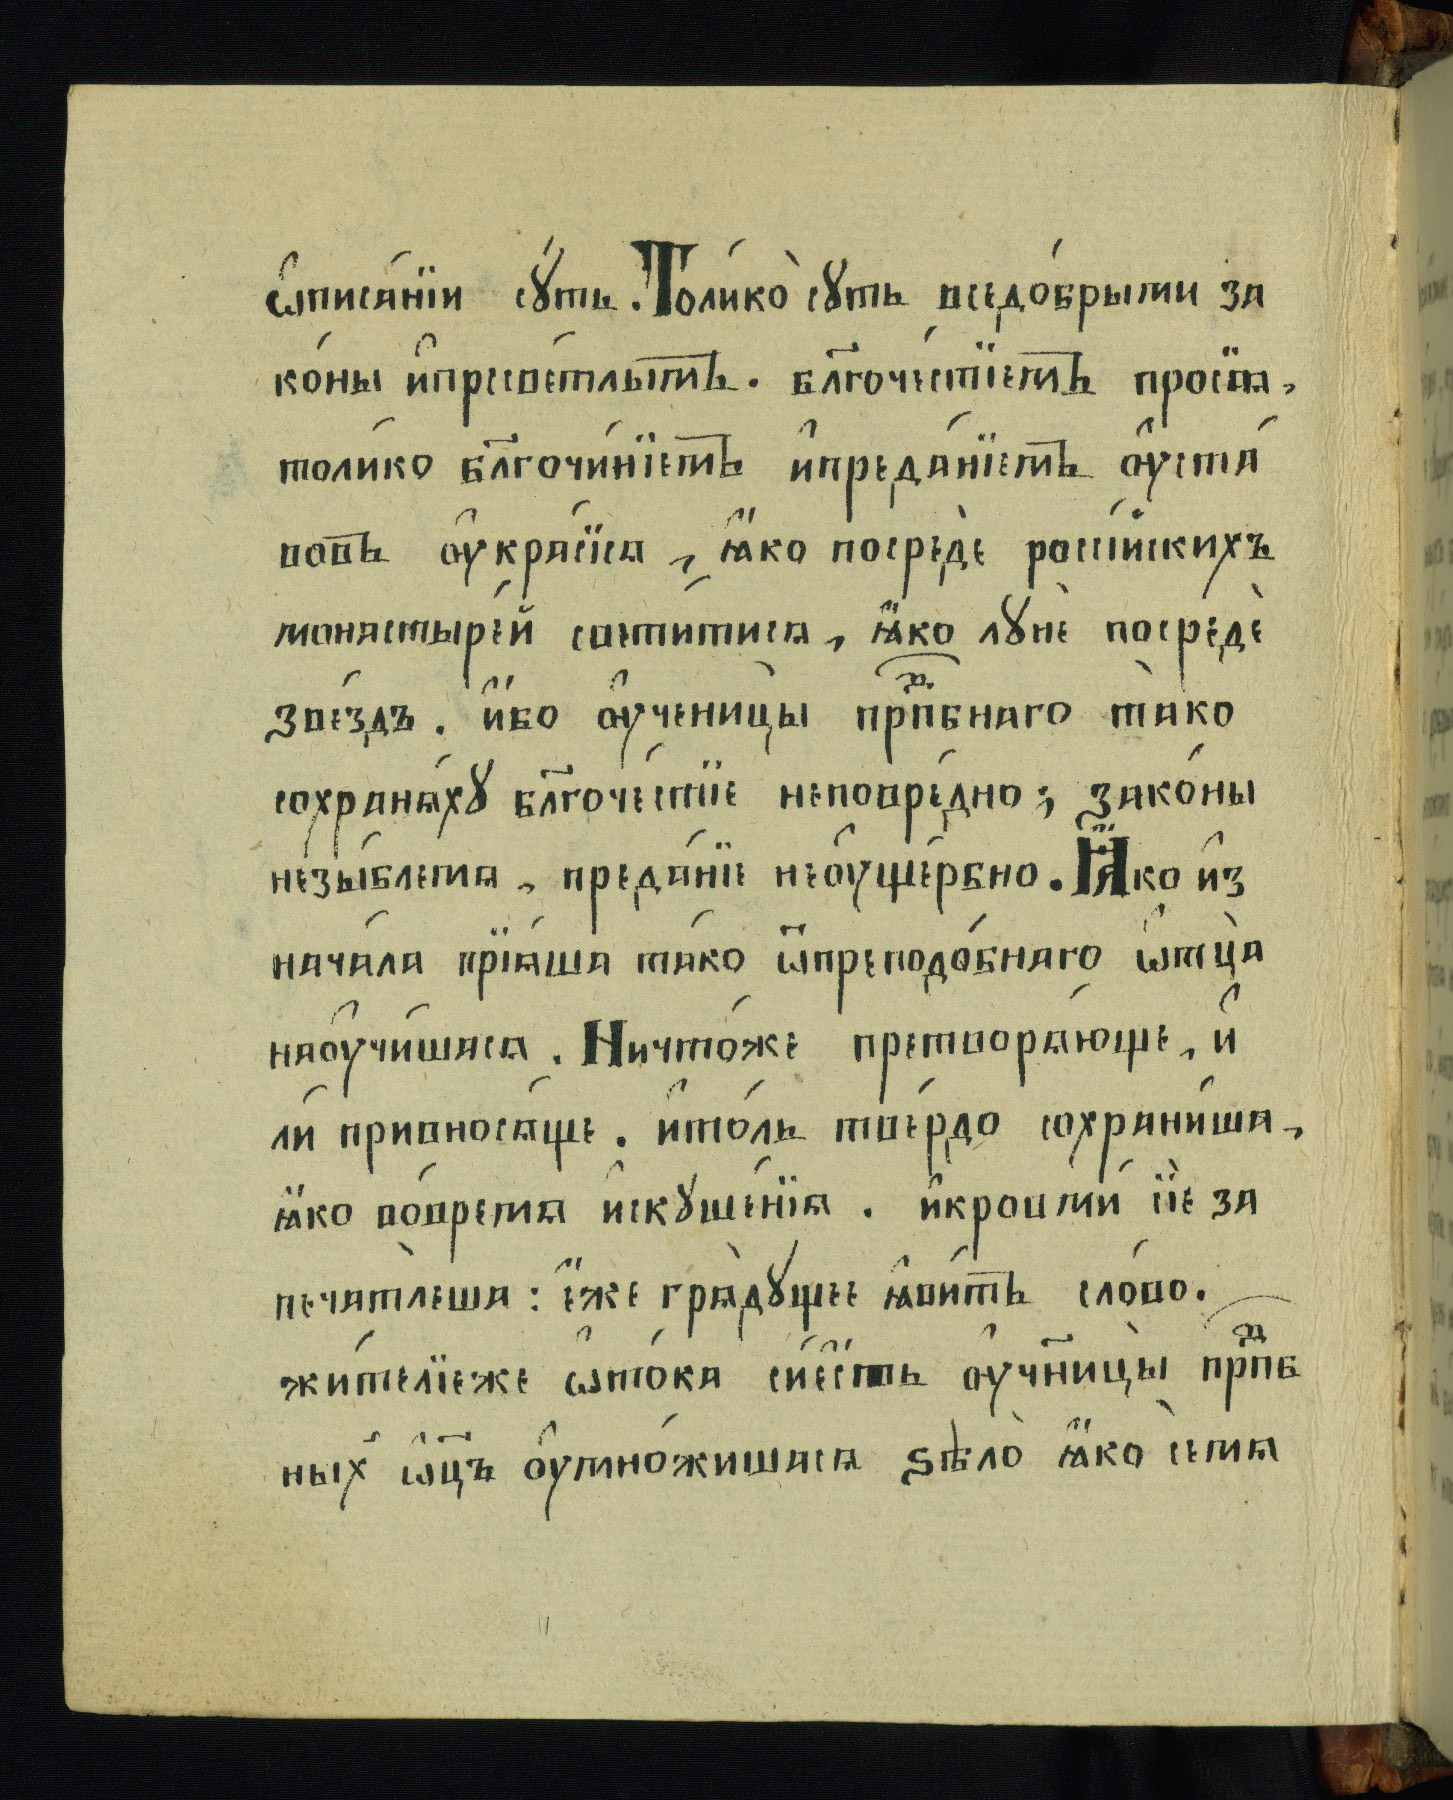 ѡ҆писа́нїи сꙋ́ть. Толи́ко̀ сꙋть вседо́брыми за
ко́ны и҆пресве́тлымъ. бл҃гоче́стїемъ просїѧ,
толи́ко бл҃гочи́нїемъ и҆преда́нїемъ ѹ҆ста́
вовъ ѹ҆кра́сисѧ, ꙗ҆́ко посре́дѐ россі́йскихъ
монастыре́й свети́тисѧ, ꙗ҆́ко лꙋнѐ посре́дѐ
звѐздъ. и҆́бо ѹ҆ченицы̀ прпⷣбнаго та̀ко
сохранѧ́хꙋ бл҃гоче́стїе неповре́дно; зако́ны
незы́блема, преда́нїе неѹ҆ще́рбно. Ꙗ҆́ко и҆з
нача́ла прїѧ́ша та́ко ѿпреподо́бнаго ѻ҆тца̀
наѹ҆чи́шасѧ. Ничто́же претворѧ́юще, и҆
ли́ привносѧ́ще. и҆то́ль тве́рдо сохрани́ша,
ꙗ҆́ко во́времѧ и҆скꙋше́нїѧ. и҆кровми́ сїѐ за
печа́тлеша: є҆́же грѧдꙋ́щее ꙗ҆ви́тъ сло́во.
жи́телїеже ѡ҆то́ка сиє҆́сть ѹ҆чн҃ицы̀ прпⷣб
ных ѻ҆ц҃ъ ѹ҆мно́жишасѧ ѕѣло̀ ꙗ҆́ко се́мѧ